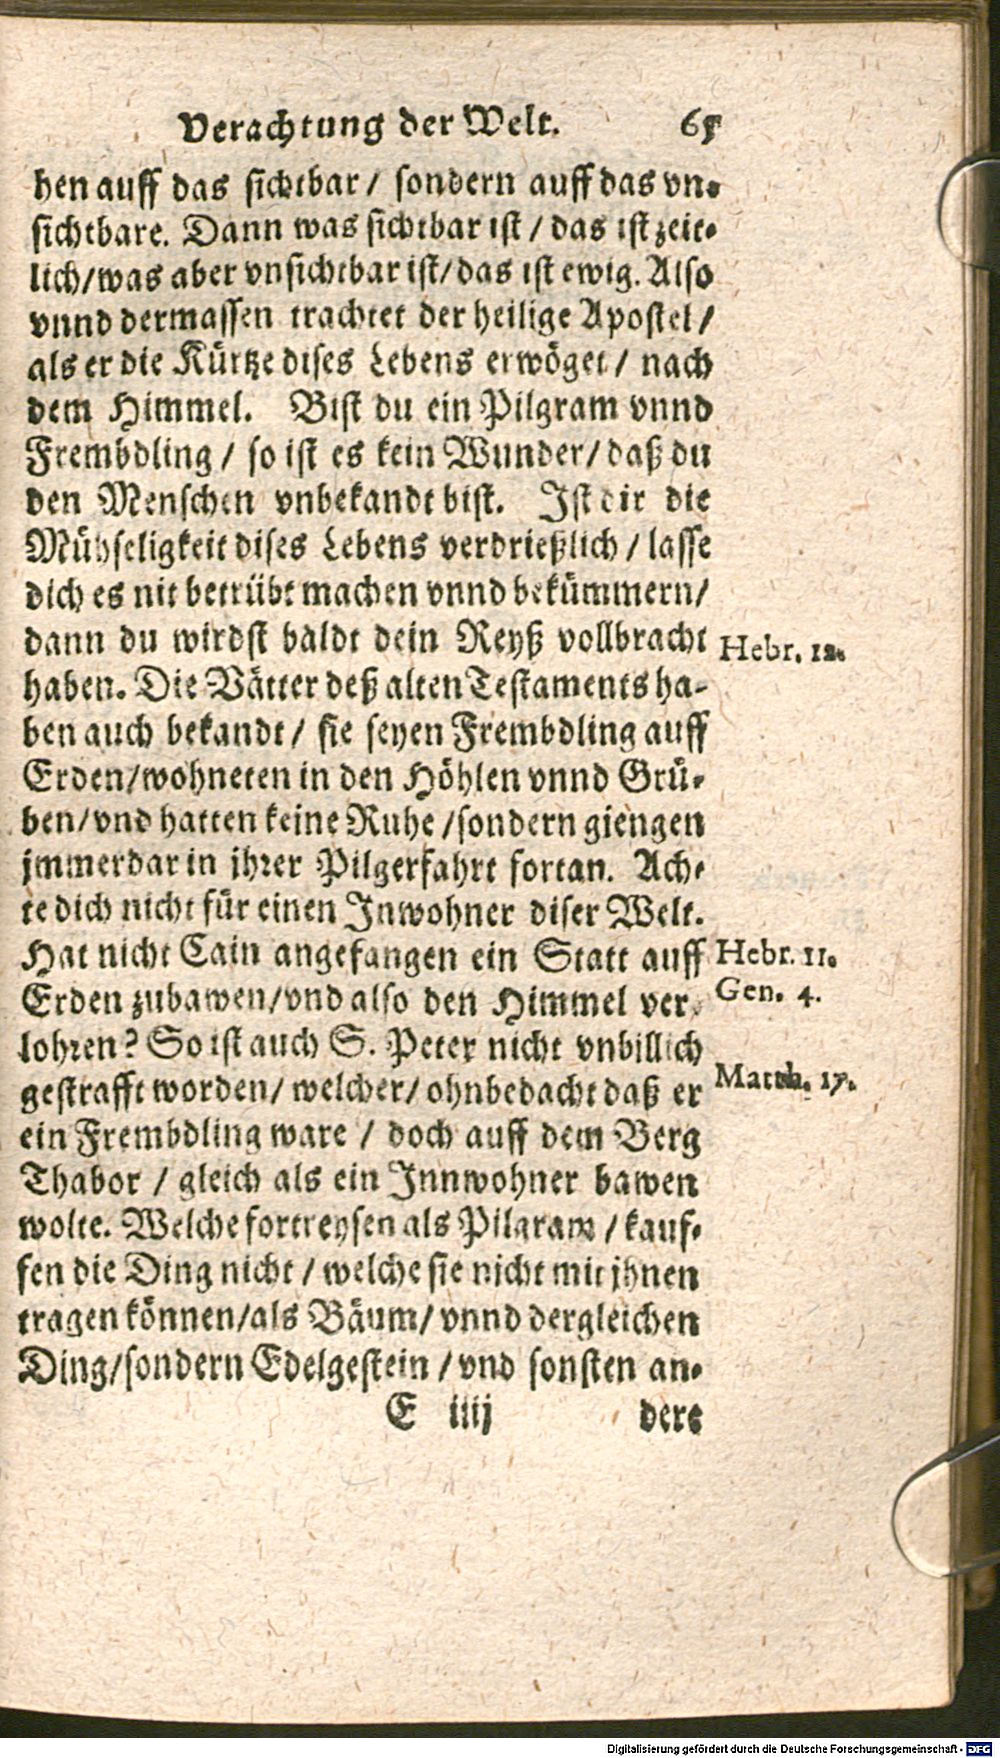 Verachtung der Welt. 65
hen auff das sichtbar / sondern auff das vn-
sichtbare. Dann was sichtbar ist / das ist zeit-
lich/was aber vnsichtbar ist/das ist ewig. Also
vnnd dermassen trachtet der heilige Apostel /
als er die Kürtze dises Lebens erwöget / nach
dem Himmel. Bist du ein Pilgram vnnd
Frembdling / so ist es kein Wunder / daß du
den Menschen vnbekandt bist. Ist dir die
Mühseligkeit dises Lebens verdrießlich / lasse
dich es nit betrübt machen vnnd bekümmern/
dann du wirdst baldt dein Reyß vollbracht
Hebr. 12.
haben. Die Vätter deß alten Testaments ha-
ben auch bekandt / sie seyen Frembdling auff
Erden/wohneten in den Höhlen vnnd Grü-
ben/vnd hatten keine Ruhe /sondern giengen
jmmerdar in jhrer Pilgerfahrt fortan. Ach-
te dich nicht für einen Inwohner diser Welt.
Hat nicht Cain angefangen ein Statt auff
Hebr. 11.
Erden zubawen/vnd also den Himmel ver-
Gen. 4.
lohren? So ist auch S. Peter nicht vnbillich
gestrafft worden/ welcher/ ohnbedacht daß er
Matth. 17.
ein Frembdling ware / doch auff dem Berg
Thabor / gleich als ein Innwohner bawen
wolte. Welche fortreysen als Pilgram / kauf-
fen die Ding nicht / welche sie nicht mit jhnen
tragen können/als Bäum/ vnnd dergleichen
Ding/sondern Edelgestein / vnd sonsten an-
E iiij dere
Digitalisierung gefördert durch die Deutsche Forschungsgemeinschaft - DFG